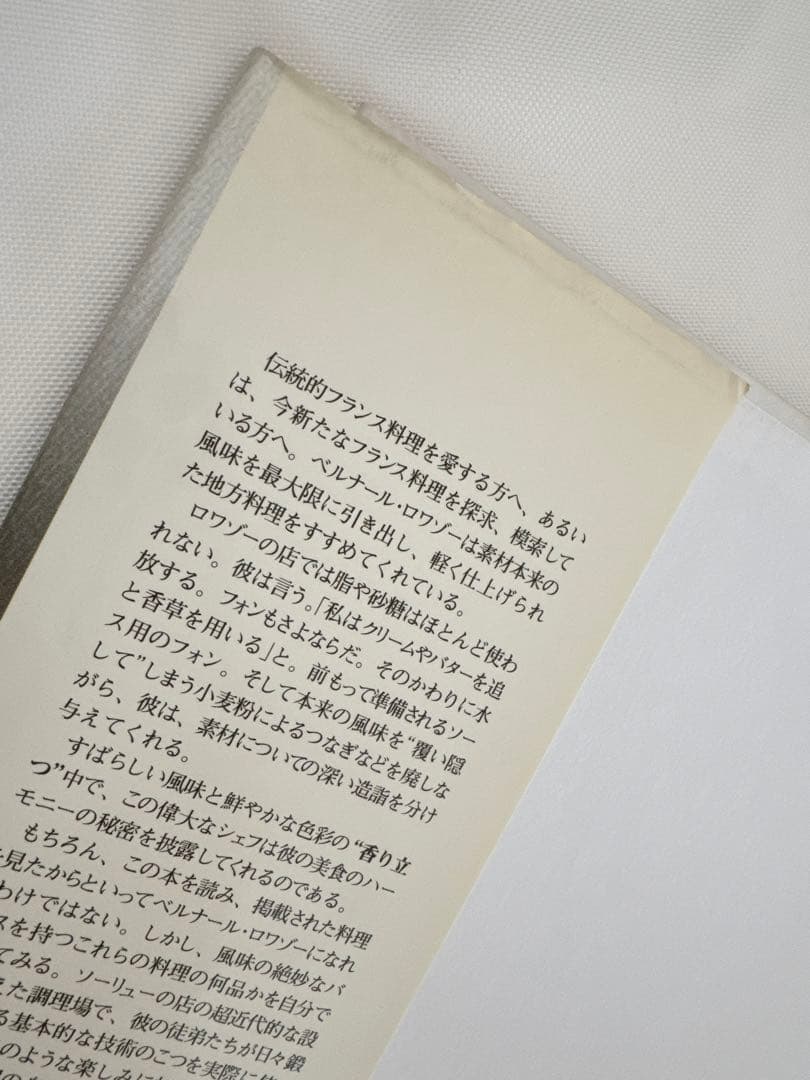 伝統的フランス料理を愛する方へ、あるい
は、今新たなフランス料理を探求、模索して
いる方へ。ベルナール・ロワゾーは素材本来の
風味を最大限に引き出し、軽く仕上げられ
た地方料理をすすめてくれている。
ロワゾーの店では脂や砂糖はほとんど使わ
れない。彼は言う。「私はクリームやバターを追
放する。フォンもさよならだ。そのかわりに水
と香草を用いる」と。前もって準備されるソー
ス用のフォン。そして本来の風味を“覆い隠
して”しまう小麦粉によるつなぎなどを廃しな
がら、彼は、素材についての深い造詣を分け
与えてくれる。
すばらしい風味と鮮やかな色彩の“香り立
つ”中で、この偉大なシェフは彼の美食のハー
モニーの秘密を披露してくれるのである。
もちろん、この本を読み、掲載された料理
を見たからといってベルナール・ロワゾーになれ
わけではない。しかし、風味の絶妙なバ
スを持つこれらの料理の何品かを自分で
てみる。ソーリューの店の超近代的な設
えた調理場で、彼の徒弟たちが日々鍛
る基本的な技術のこつを実際に
のような楽しみに